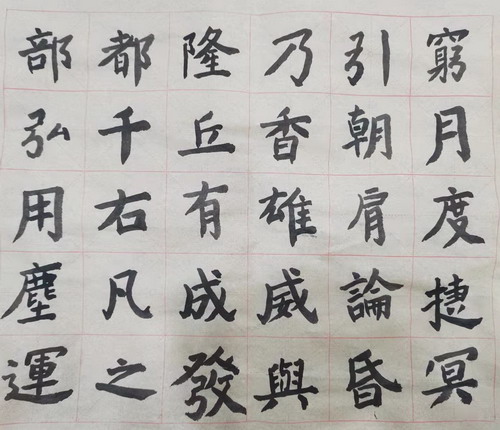 部都隆乃引窮
弘千丘香朝月
用右有雄肩度
塵凡成威論捷
運之發與昏冥